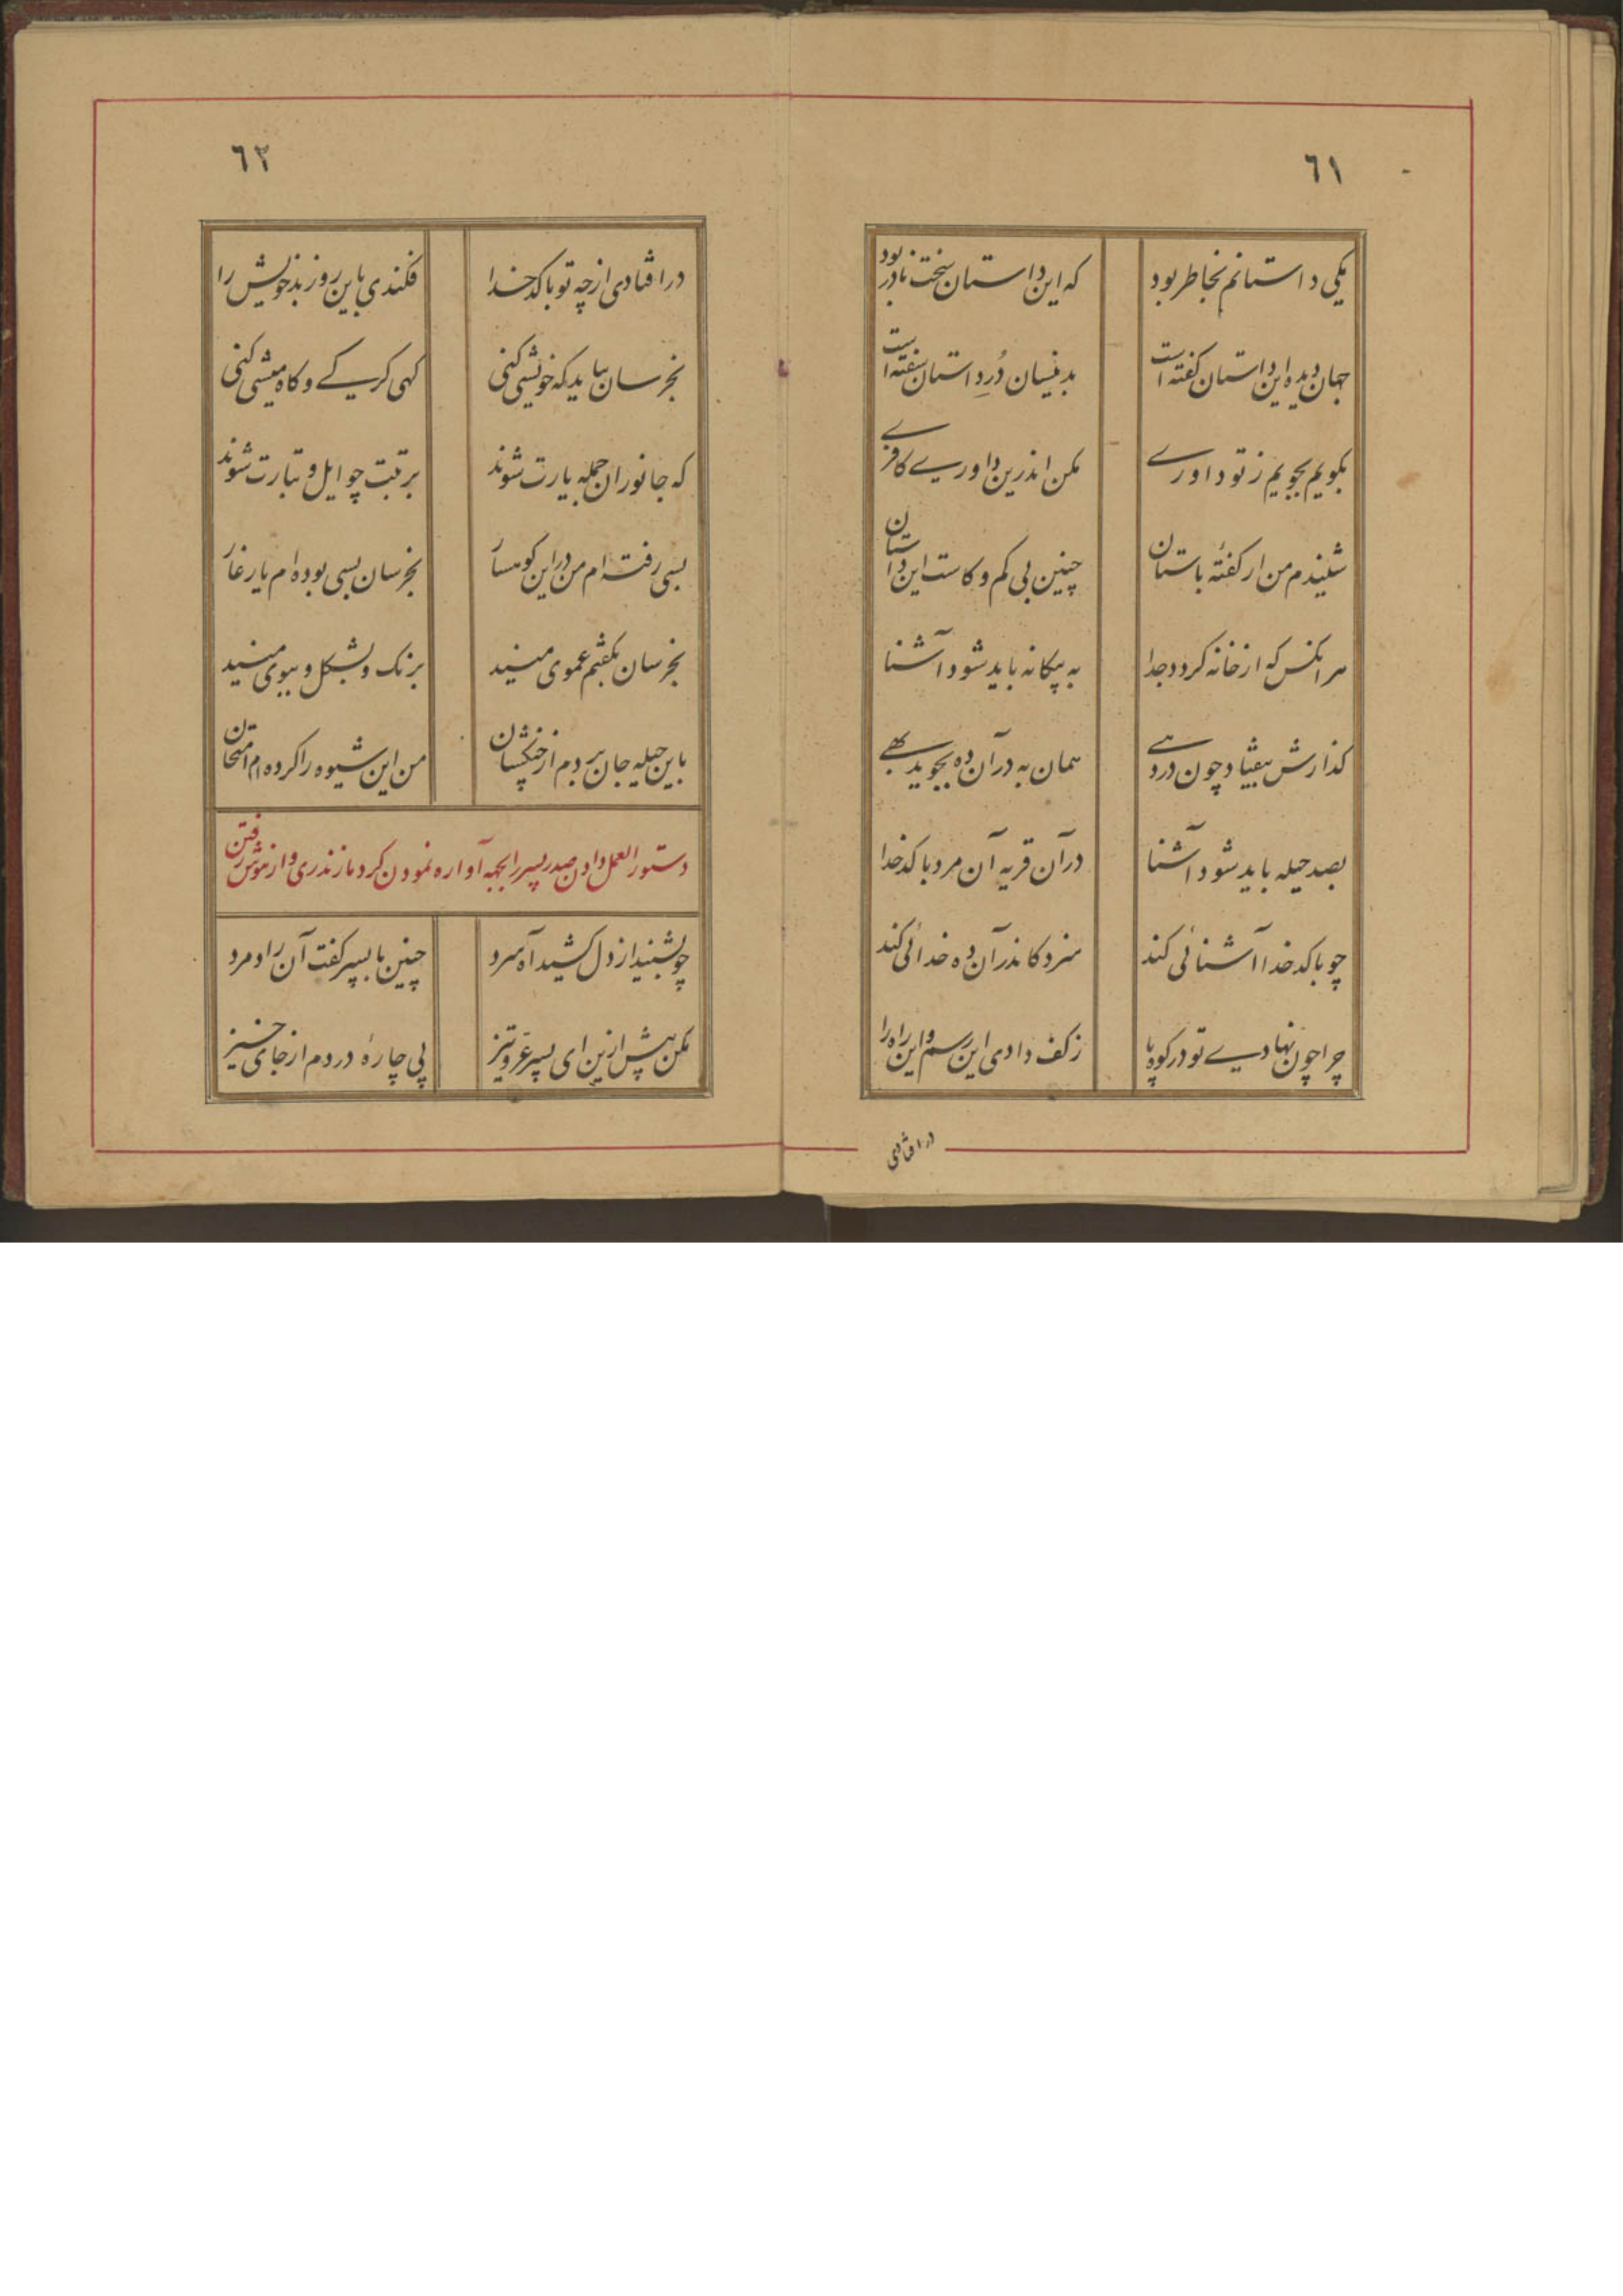 ٦١
یکی داستانم بخاطر بود که این داستان سخت نادر بود
جهان دیده این داستان کفته است بدینسان دُرِ داستان سفته است
بکویم بجویم ز تو داوری مکن اندرین داوری کافری
شنیدم من از کفتهٔ باستان چنین بی کم و کاست این داستان
هر انکس که از خانه کردد جدا به بیکانه باید شود آشنا
کذارش بیفتاد چون در دهی همان به در آن ده بجوید بهی
بصد حیله باید شود آشنا در آن قریه آن مرد با کدخدا
چو با کدخدا آشنائی کند سزد کاندر آن ده خدائی کند
چرا چون نهادی تو در کوه پا ز کف دادی این رسم و این راه را
در افتادی
٦٢
در افتادی از چه تو با کدخدا فکندی باین روز بد خویش را
بخرسان بباید که خویشی کنی کهی کرکی و کاه میشی کنی
که جانوران جمله یارت شوند برتبت چو ایل و تبارت شوند
بسی رفته ام من در این کوهسار بخرسان بسی بوده ام یار غار
بخرسان بکفتم عموی منید برنک و بشکل و ببوی منید
باین حیله جان بردم از چنکشان من این شیوه را کرده ام امتحان
دستور العمل دادن صدر پسر را بجهه آواره نمودن کرد مازندری و از هوش رفتن
چو بشنید از دل کشید آه سرد چنین با پسر کفت آن راد مرد
مکن بیش ازین ای پسر عَرّ و تیز پی چارهٔ دردم از جای خیز